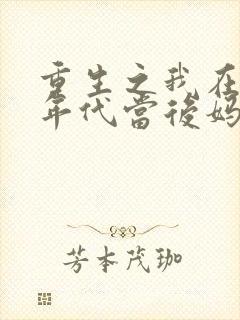 重生之我在
年代當後媽
芳本茂珈